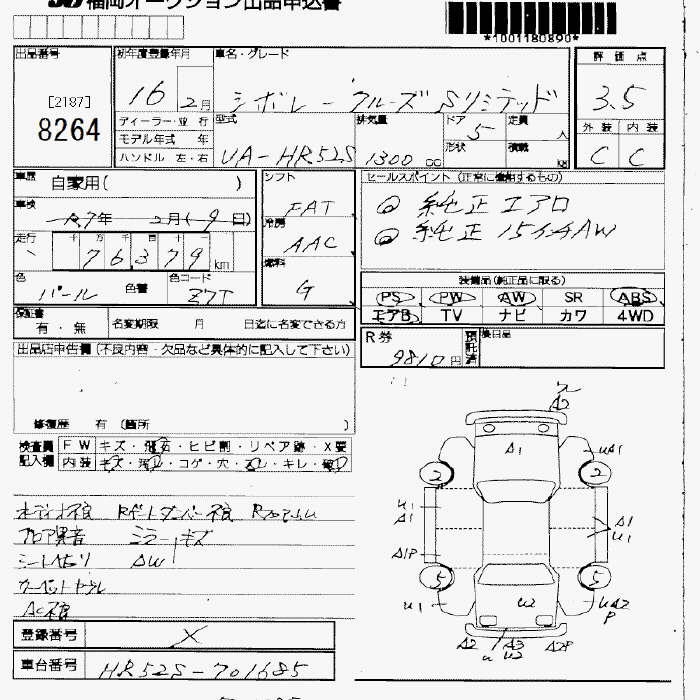 福岡オークション出品申込書
*1001180890*
出品番号
[2187]
8264
初年度登録年月
16 2月
車名・グレード
シボレー クルーズ Sリミテッド
評価点
3.5
外装 内装
C C
ディーラー・並行
モデル年式 年
ハンドル 左・右
型式
UA-HR52S
排気量
1300 CC
ドア
5
形状
定員
人
積載
kg
車歴 自家用( )
車検
2月(9日)
走行
十万千百十
76379 km
色
パール
色替
色コード
Z7T
シフト
FAT
冷房
AAC
燃料
G
セールスポイント (正常に機能するもの)
◎ 純正 エアロ
◎ 純正 15インチAW
装備品(純正品に限る)
PS PW AW SR ABS
エアB TV ナビ カワ 4WD
保証書
有・無
名変期限 月 日迄に名変できる方
R券
9810円
預託済
後日品
出品店申告欄(不良内容・欠品など具体的に記入して下さい)
修復歴 有 (箇所 )
検査員記入欄
FW キズ・飛石・ヒビ割・リペア跡・X要
内装 キズ・汚レ・コゲ・穴・スレ・キレ・破レ
フロア異音 ミラーキズ
AW
AC不良
登録番号 X
車台番号 HR52S-701685
A2
A1
uA1
2 2
u1
A1
A1
u1
A1P
5 5
u1
u2
uA2
P
A2
u
A3
u2
A2P